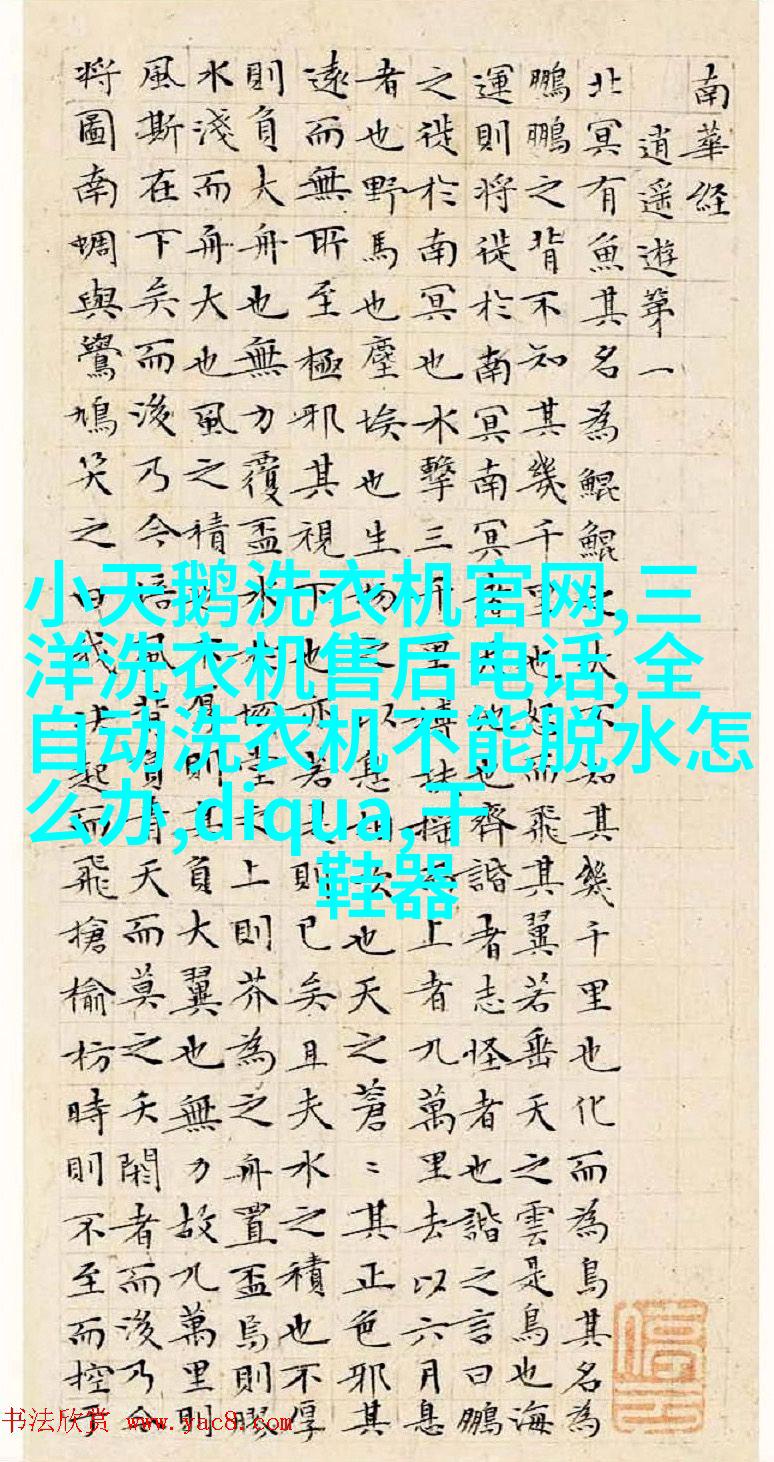 南華经
逍遥遊第一
北冥有魚其名為鯤鯤之大不知其幾千里也化而為鳥其名為
鵬鵬之背不知其幾千里也怒而飛其翼若垂天之雲是鳥也海
運則将徙於南冥南冥者天池也齊諧者志怪者也諧之言曰鵬
之徙於南冥也水擊三千里摶扶搖而上者九萬里去以六月息
者也野馬也塵埃也生物之以息相吹也天之蒼〻其正色邪其
遠而無所至極邪其視下也亦若是則已矣且夫水之積也不厚
則負大舟也無力覆盃水於坳堂之上則芥為之舟置盃焉則膠
水淺而舟大也風之積也不厚則其負大翼也無力故九萬里則
風斯在下矣而後乃今培風背負青天而莫之夭閼者而後乃今
将圖南蜩與鷽鳩笑之曰我决起而飛搶榆枋時則不至而控於
小天鹅洗衣机官网,三
洋洗衣机售后电话,全
自动洗衣机不能脱水怎
么办,diqua,干
鞋器
书法欣赏 www.yac8.com